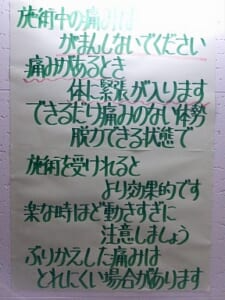 施術中の痛みは
がまんしないでください
痛みがあるとき
体に緊張が入ります
できるだけ痛みのない体勢
脱力できる状態で
施術を受けれると
より効果的です
楽な時ほど動きすぎに
注意しましょう
ぶりかえした痛みは
とれにくい場合があります